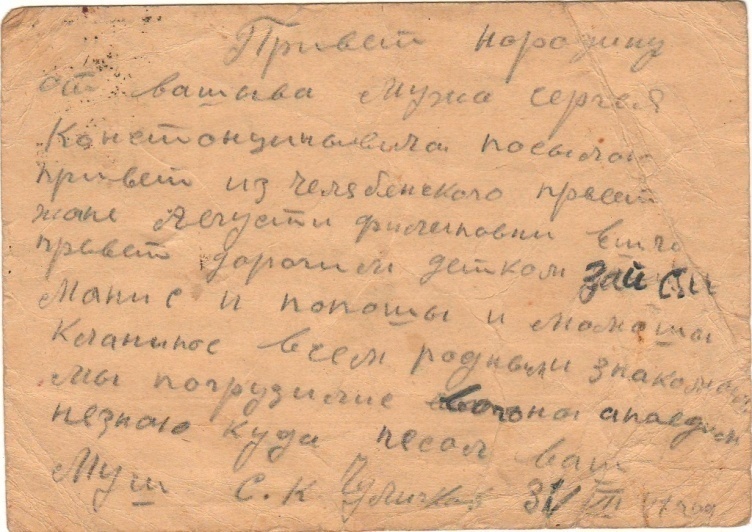 Привет народину
от вашыва Мужа сергея
Констонцинывича посылаю
привет из челябенского превет
жане Августи филиповни еще
превет дорогим детком Зайски
Мание и попошы и момошы
Кланиюс всем родным знакомым
мы погрузилис вогоны апаедим
незнаю куда песал ваш
Муш С.К 31 VII год